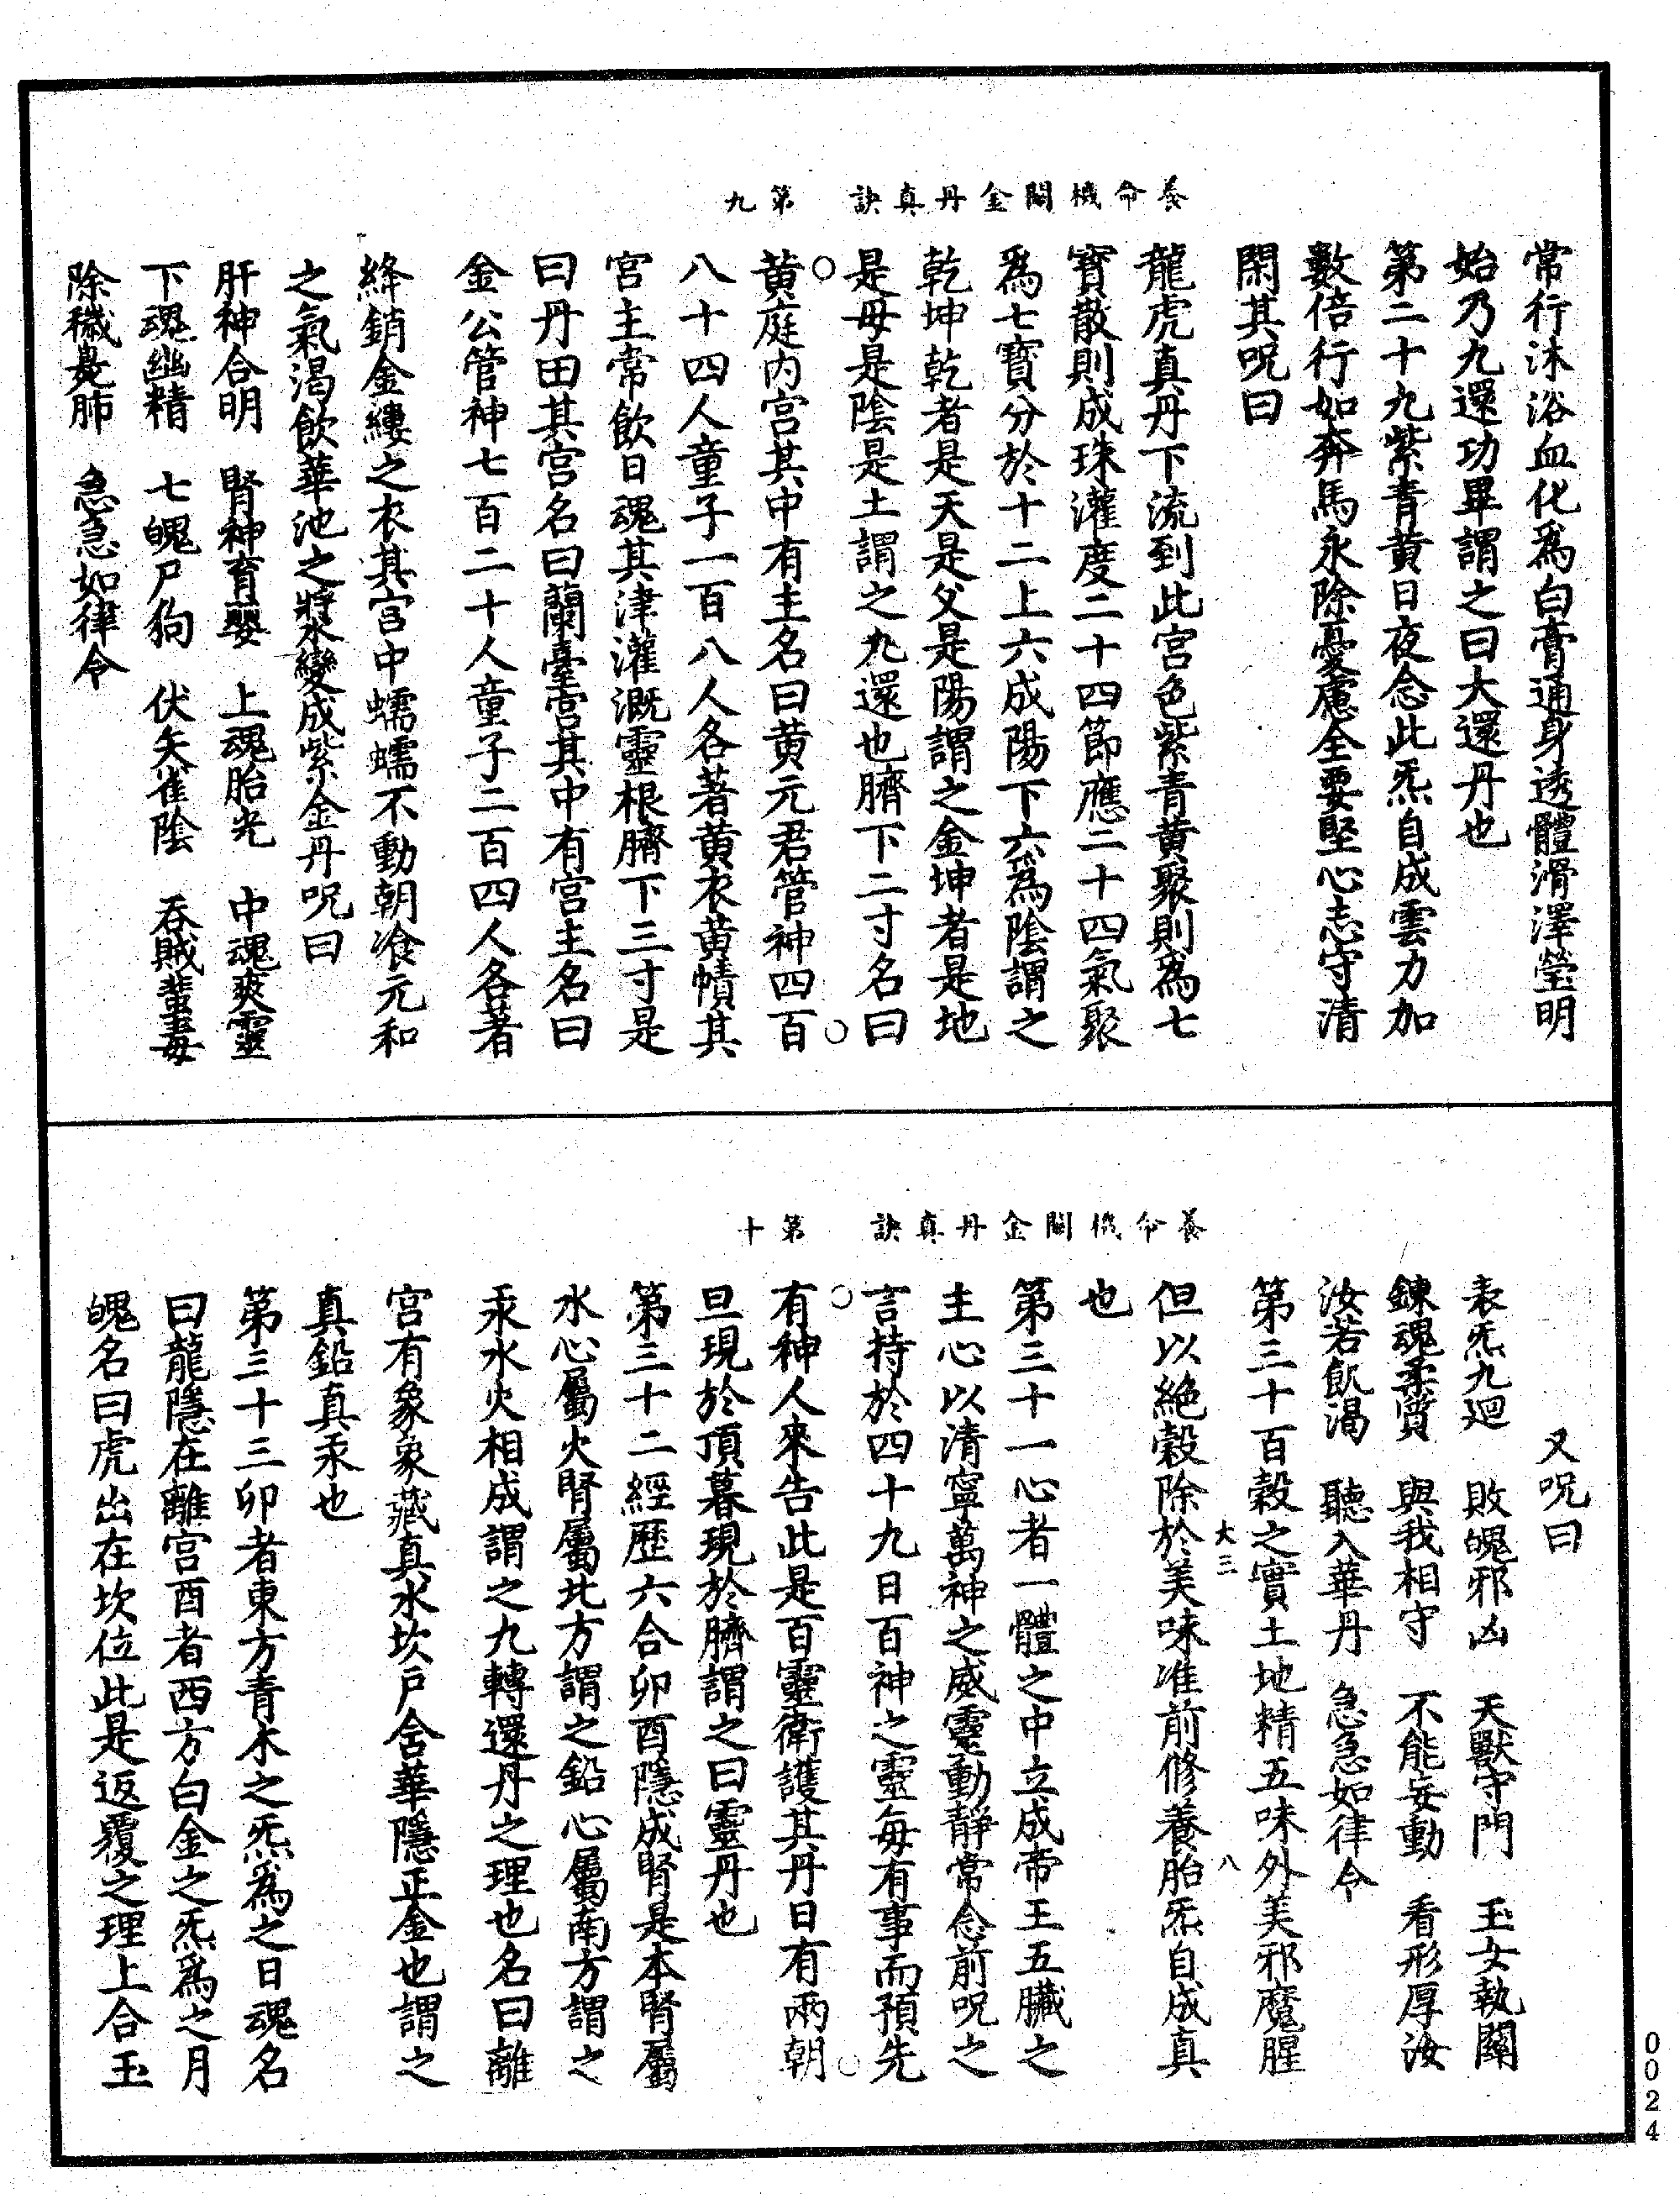 常行沐浴血化爲白膏通身透體滑澤瑩明
始乃九還功畢謂之曰大還丹也
第二十九紫青黄日夜念此炁自成雲力加
數倍行如奔馬永除憂慮全要堅心志守清
閑其呪曰
養命機關金丹真訣 第九
龍虎真丹下流到此宫色紫青黄聚則爲七
寶散則成珠灌度二十四節應二十四氣聚
爲七寶分於十二上六成陽下六爲隂謂之
乾坤乾者是天是父是陽謂之金坤者是地
是母是隂是土謂之九還也臍下二寸名曰
黄庭内宫其中有主名曰黄元君管神四百
八十四人童子一百八人各著黄衣黄幘其
宫主常飲日魂其津灌溉靈根臍下三寸是
曰丹田其宫名曰蘭臺宫其中有宫主名曰
金公管神七百二十人童子二百四人各著
絳銷金縷之衣其宫中蠕蠕不動朝飡元和
之氣渴飲華池之漿水變成紫金丹呪曰
肝神合明 腎神育嬰 上魂胎光 中魂爽靈
下魂幽精 七魄尸狗 伏矢雀隂 吞賊蜚毒
除穢臭肺 急急如律令
又呪曰
表炁九迴 敗魄邪凶 天獸守門 玉女執關
鍊魂柔質 與我相守 不能妄動 看形厚汝
汝若飲渴 聽入華丹 急急如律令
第三十百穀之實土地精五味外美邪魔腥
大三 八
養命機關金丹真訣 第十
但以絶穀除於美味准前修養胎炁自成真
也
第三十一心者一體之中立成帝王五臟之
主心以清寧萬神之威靈動靜常念前呪之
言持於四十九日百神之靈每有事而預先
有神人來告此是百靈衛護其丹日有兩朝
旦現於頂暮現於臍謂之曰靈丹也
第三十二經歷六合卯酉隱成腎是本腎屬
水心屬火腎屬北方謂之鉛心屬南方謂之
汞水火相成謂之九轉還丹之理也名曰離
宫有象象藏真水坎户含華隱正金也謂之
真鉛真汞也
第三十三卯者東方青木之炁爲之日魂名
曰龍隱在離宫酉者西方白金之炁爲之月
魄名曰虎出在坎位此是返覆之理上合玉
0024